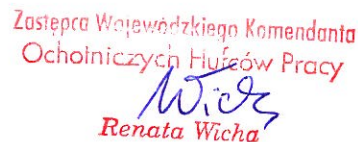 Zastępca Wojewódzkiego Komendanta
Ochotniczych Hufców Pracy
Wicha
Renata Wicha